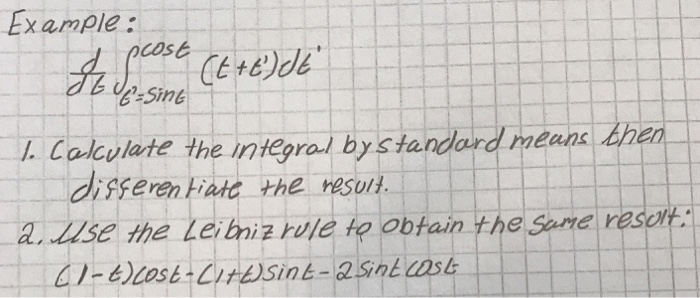 Example:
d/dt ∫_{t'=sint}^{cost} (t+t')dt'
1. Calculate the integral by standard means then
differentiate the result.
2. Use the Leibniz rule to obtain the same result:
(1-t)cost-(1+t)sint-2sintcost